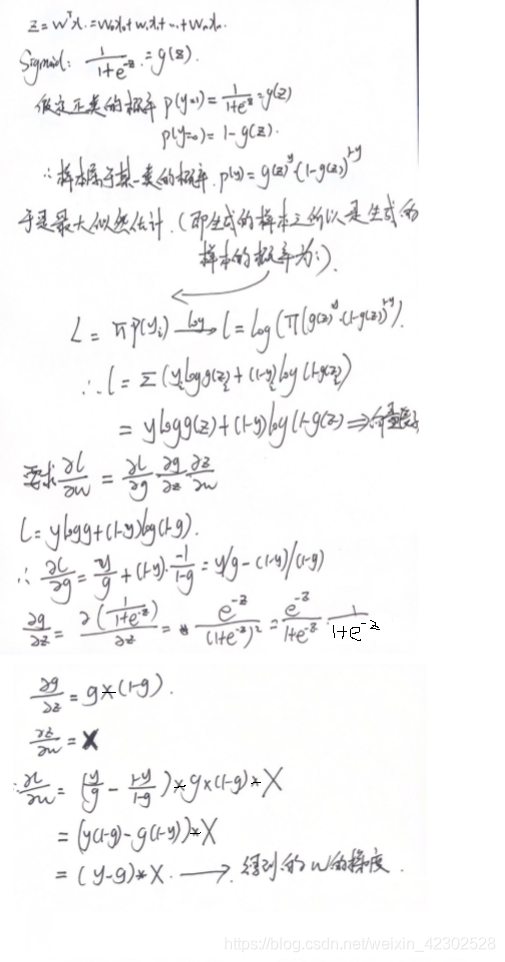 z = wᵀx = w₀x₀ + w₁x₁ + … + wₙxₙ.
Sigmoid: 1/(1+e^{-z}) = g(z).
假定正类的概率 p(y=1) = 1/(1+e^{-z}) = g(z)
p(y=0) = 1 - g(z).
∴ 样本属于某一类的概率. p(y) = g(z)^y·(1-g(z))^{1-y}
于是最大似然估计. (即生成的样本之所以是生成的
样本的概率为:).
L = π p(yᵢ) —log→ l = log(π(g(z)^y·(1-g(z))^{1-y}).
∴ l = Σ(yᵢ log g(zᵢ) + (1-yᵢ) log(1-g(zᵢ))
= y log g(z) + (1-y) log(1-g(z)) ⇒ 向量
要求 ∂l/∂w = ∂l/∂g ∂g/∂z ∂z/∂w
l = y log g + (1-y) log(1-g).
∴ ∂l/∂g = y/g + (1-y)·-1/(1-g) = y/g - (1-y)/(1-g)
∂g/∂z = ∂(1/(1+e^{-z}))/∂z = e^{-z}/(1+e^{-z})² = e^{-z}/(1+e^{-z}) · 1/(1+e^{-z})
∂g/∂z = g*(1-g).
∂z/∂w = X
∴ ∂l/∂w = (y/g - (1-y)/(1-g)) * g*(1-g) * X
= (y(1-g) - g(1-y)) * X
= (y-g) * X. → 得到的w的梯度.
https://blog.csdn.net/weixin_42302528